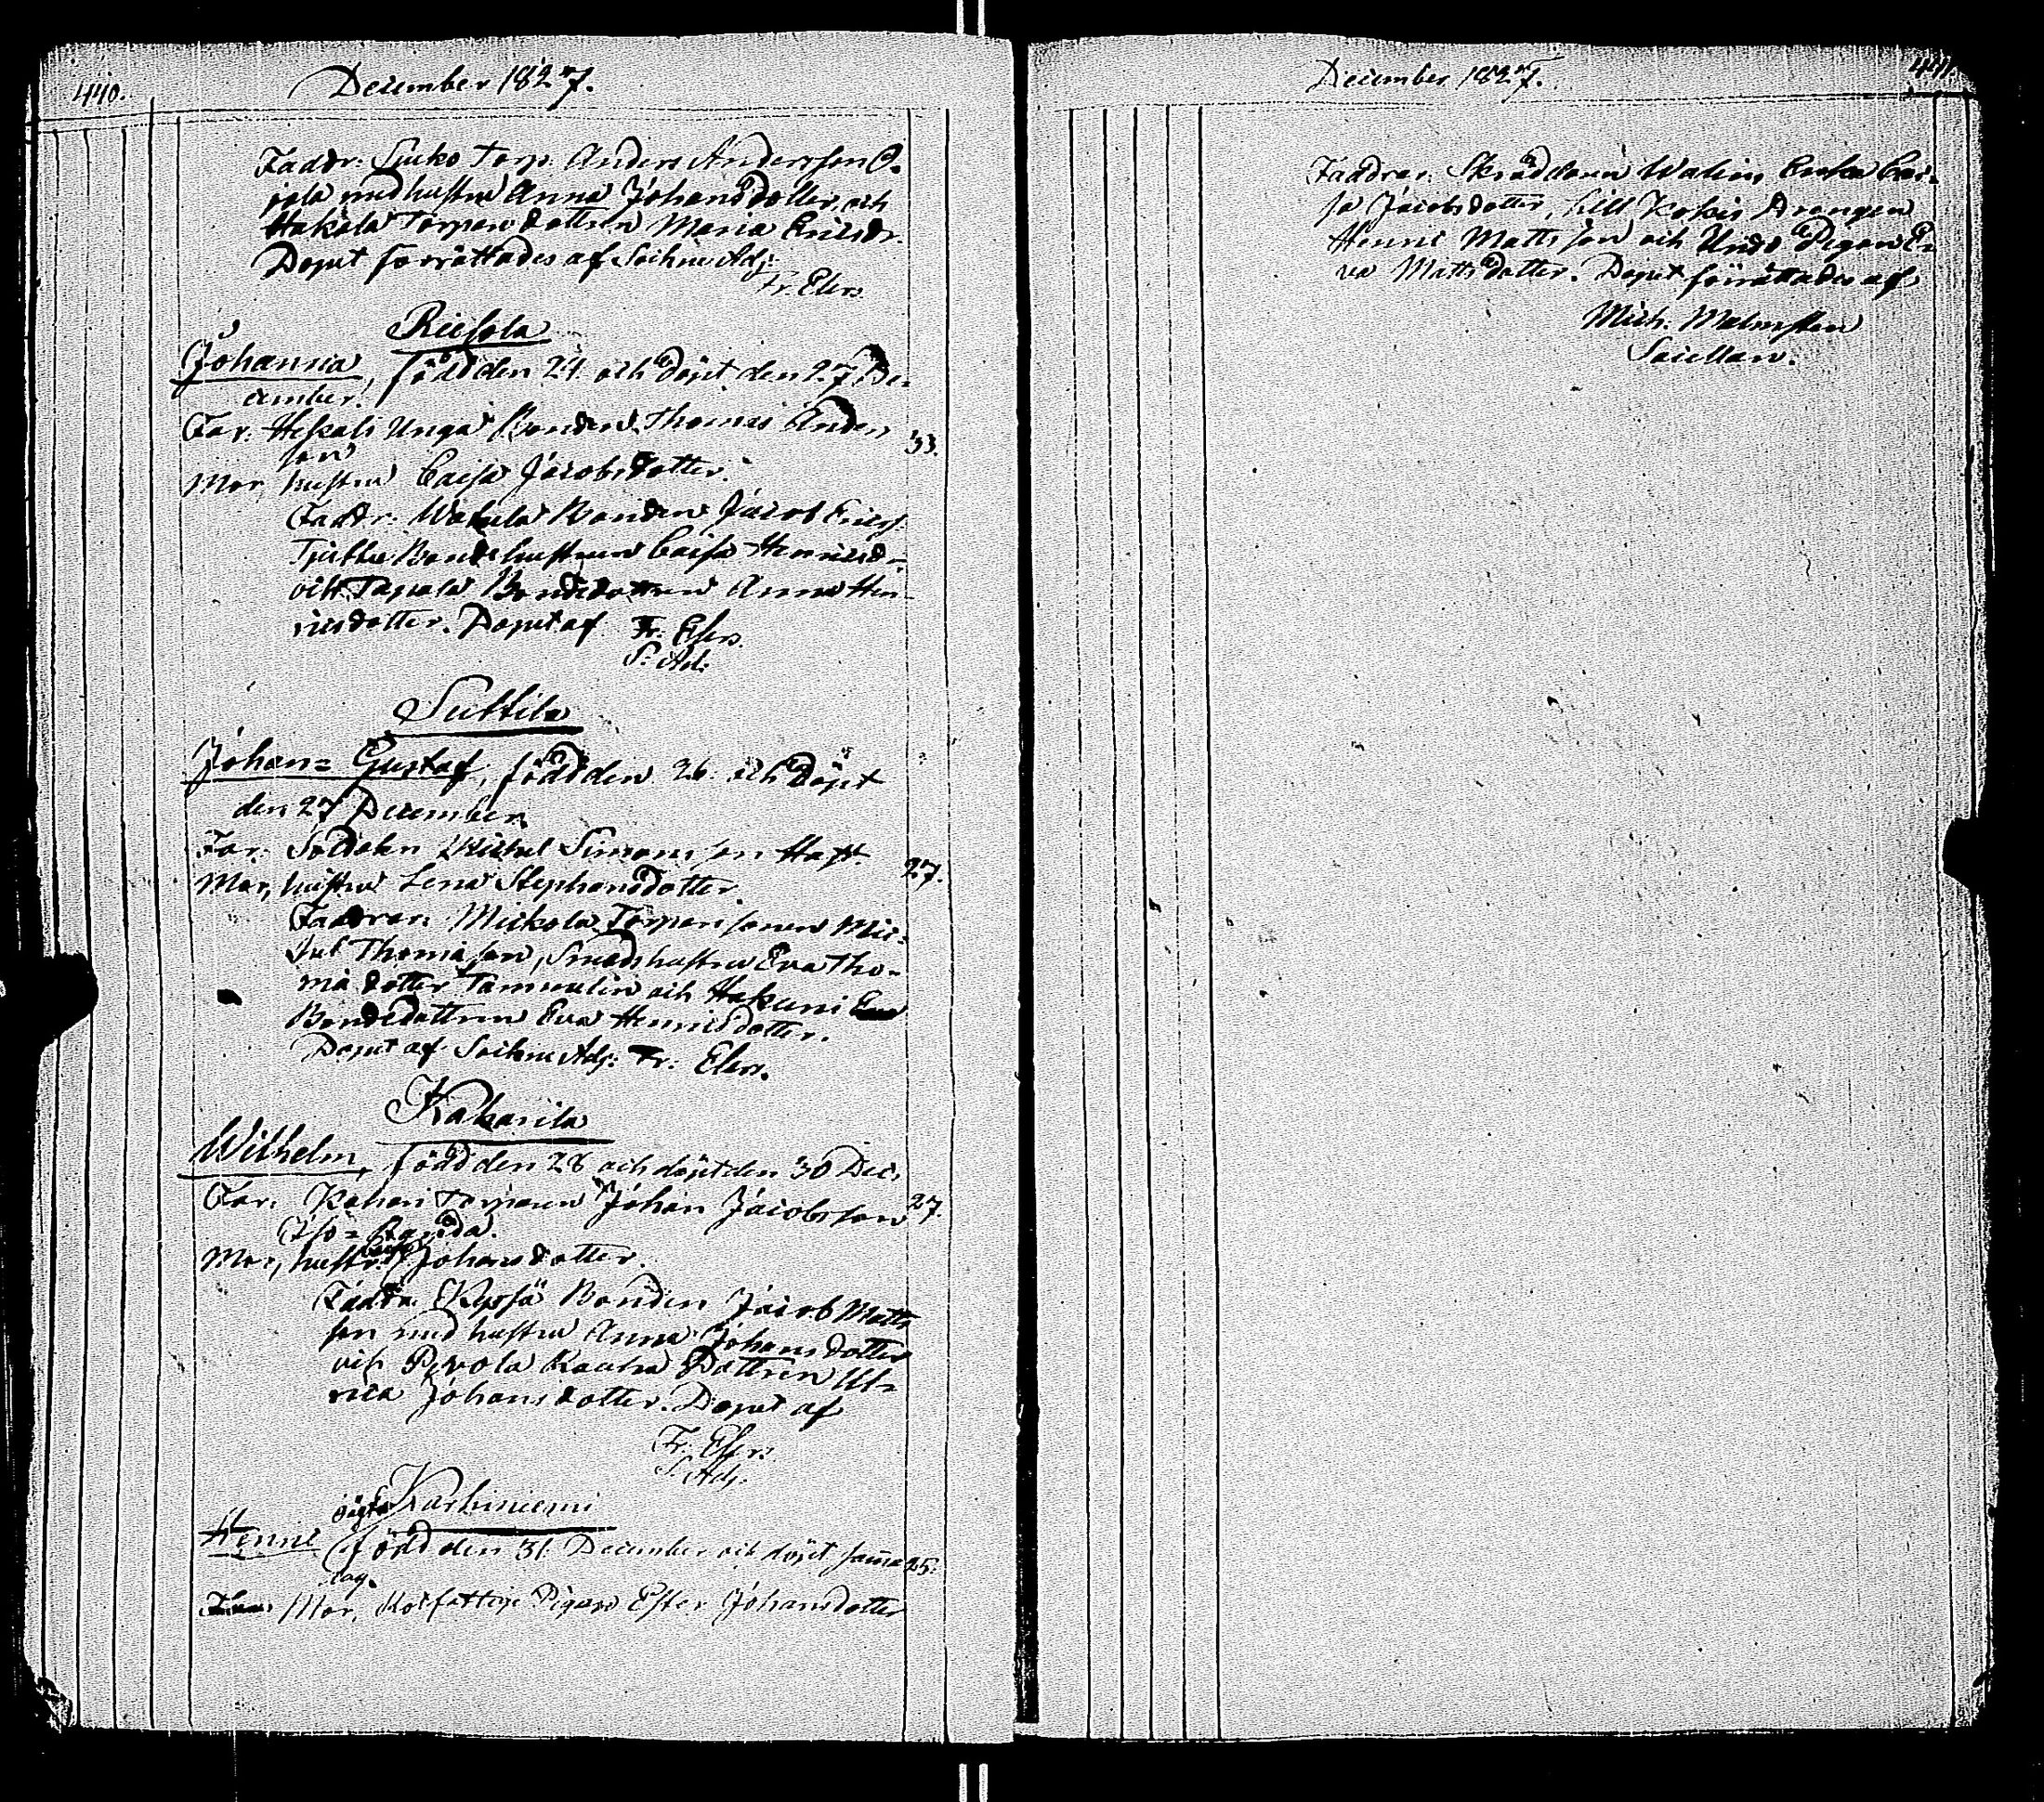 440.
December 1827.
Faddr: Suko Torp. Anders Andersson O-
jala med hustru Anna Johansdotter och
Hakola Torparedottren Maria Ericsdr.
Döpet förrättades af Sockne Adj:
Fr. Elers
Riesola
Johanna, född den 24. och döpt den 27. De-
cember.
Far: Heskali Unga Bonden Thomas Anders
son
33.
Mor, hustru Caisa Jacobsdotter.
Faddr: Bonden Jacob Ericss.
Bondehustrun Caisa Henricsdr
och Tapola Bondedottren Anna Hen-
ricsdotter. Döpt af Fr. Elers
S. Ad:
Suttila
Johan= Gustaf, född den 26. och döpt
den 27 December.
Far: Soldaten Michel Simonsson
27.
Mor, hustru Lena Stephansdotter.
Faddrar: Mickola Torparesonen Mic-
hel Thomasson, Smedshustru Eva Tho-
mädotter Tammelin och
Bondedottren Eva Henricsdotter.
Döpt af Sockne Adj: Fr: Elers.
Kakarila
Wilhelm, född den 28 och döpt den 30 Dec.
Far: Torparen Johan Jacobsson
27.
Mor, hustr. Caisa Johansdotter.
Faddr. Bonden Jacob Matts
son med hustru Anna Johansdotter
och Dottren Ul-
rica Johansdotter. Döpt af
Fr. Elers
S. Adj.
oägta Karhiniemi
Henric född den 31. December och döpt samma
25.
dag.
Mor, Pigan Ester Johansdotter
December 1827.
441.
Faddrar: Skräddaren Walins Enka Cai-
sa Jacobsdotter, Drängen
Henric Mattsson och Pigan E-
va Mattsdotter. Döpet förrättades af
Mich: Malmsten
Sacellan.